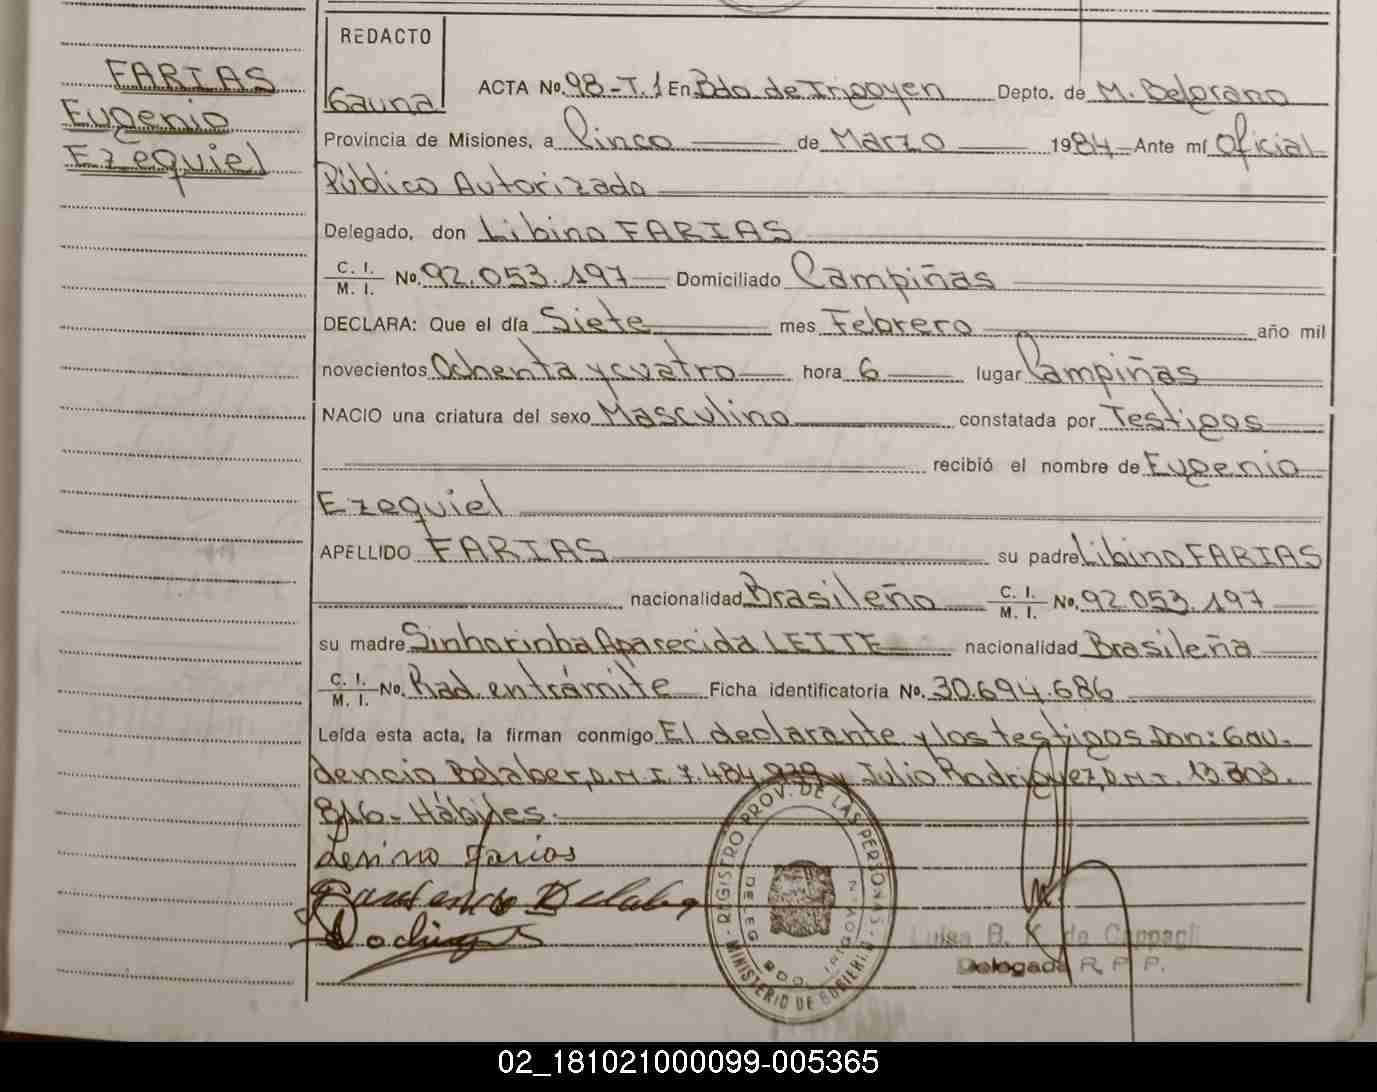 REDACTO
Gauna
FARIAS
Eugenio
Ezequiel
ACTA No. 98-T.1 En Bdo de Irigoyen Depto. de M. Belgrano
Provincia de Misiones, a Cinco de Marzo 1984 Ante mí Oficial
Público Autorizado
Delegado, don Libino FARIAS
C. I. / M. I. No. 92.053.197 Domiciliado Campiñas
DECLARA: Que el día Siete mes Febrero año mil
novecientos Ochenta y cuatro hora 6 lugar Campiñas
NACIO una criatura del sexo Masculino constatada por Testigos
recibió el nombre de Eugenio
Ezequiel
APELLIDO FARIAS su padre Libino FARIAS
nacionalidad Brasileño C. I. / M. I. No. 92.053.197
su madre Sinhorinha Aparecida LEITE nacionalidad Brasileña
C. I. / M. I. No. Rad. en trámite Ficha identificatoria No. 30.694.686
Leída esta acta, la firman conmigo El declarante y los testigos Don: Gau-
dencio Belaber, D.N.I. 7.484.979 y Julio Rodriguez, D.N.I. 13.803.
816- Hábiles.
Farias
REGISTRO PROV. DE LAS PERSONAS
DELEG. BDO. IRIGOYEN
MINISTERIO DE GOBIERNO
Luisa B. K. de
Delegada R. P. P.
02_181021000099-005365